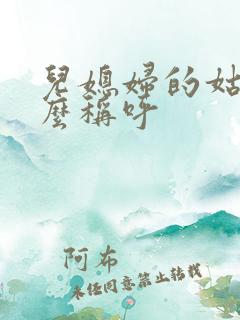 兒媳婦的姑
麼稱呼
阿布
未经同意禁止转载